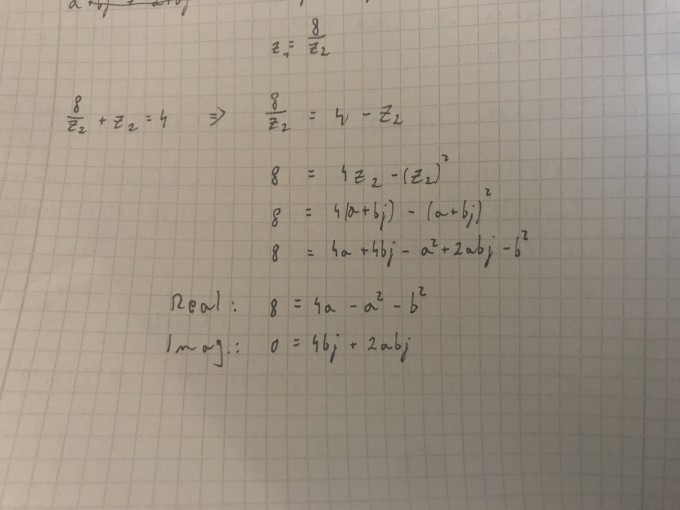 z₁ = 8/z₂
8/z₂ + z₂ = 4 ⇒ 8/z₂ = 4 - z₂
8 = 4z₂ - (z₂)²
8 = 4(a+bj) - (a+bj)²
8 = 4a + 4bj - a² + 2abj - b²
Real: 8 = 4a - a² - b²
Imag.: 0 = 4bj + 2abj